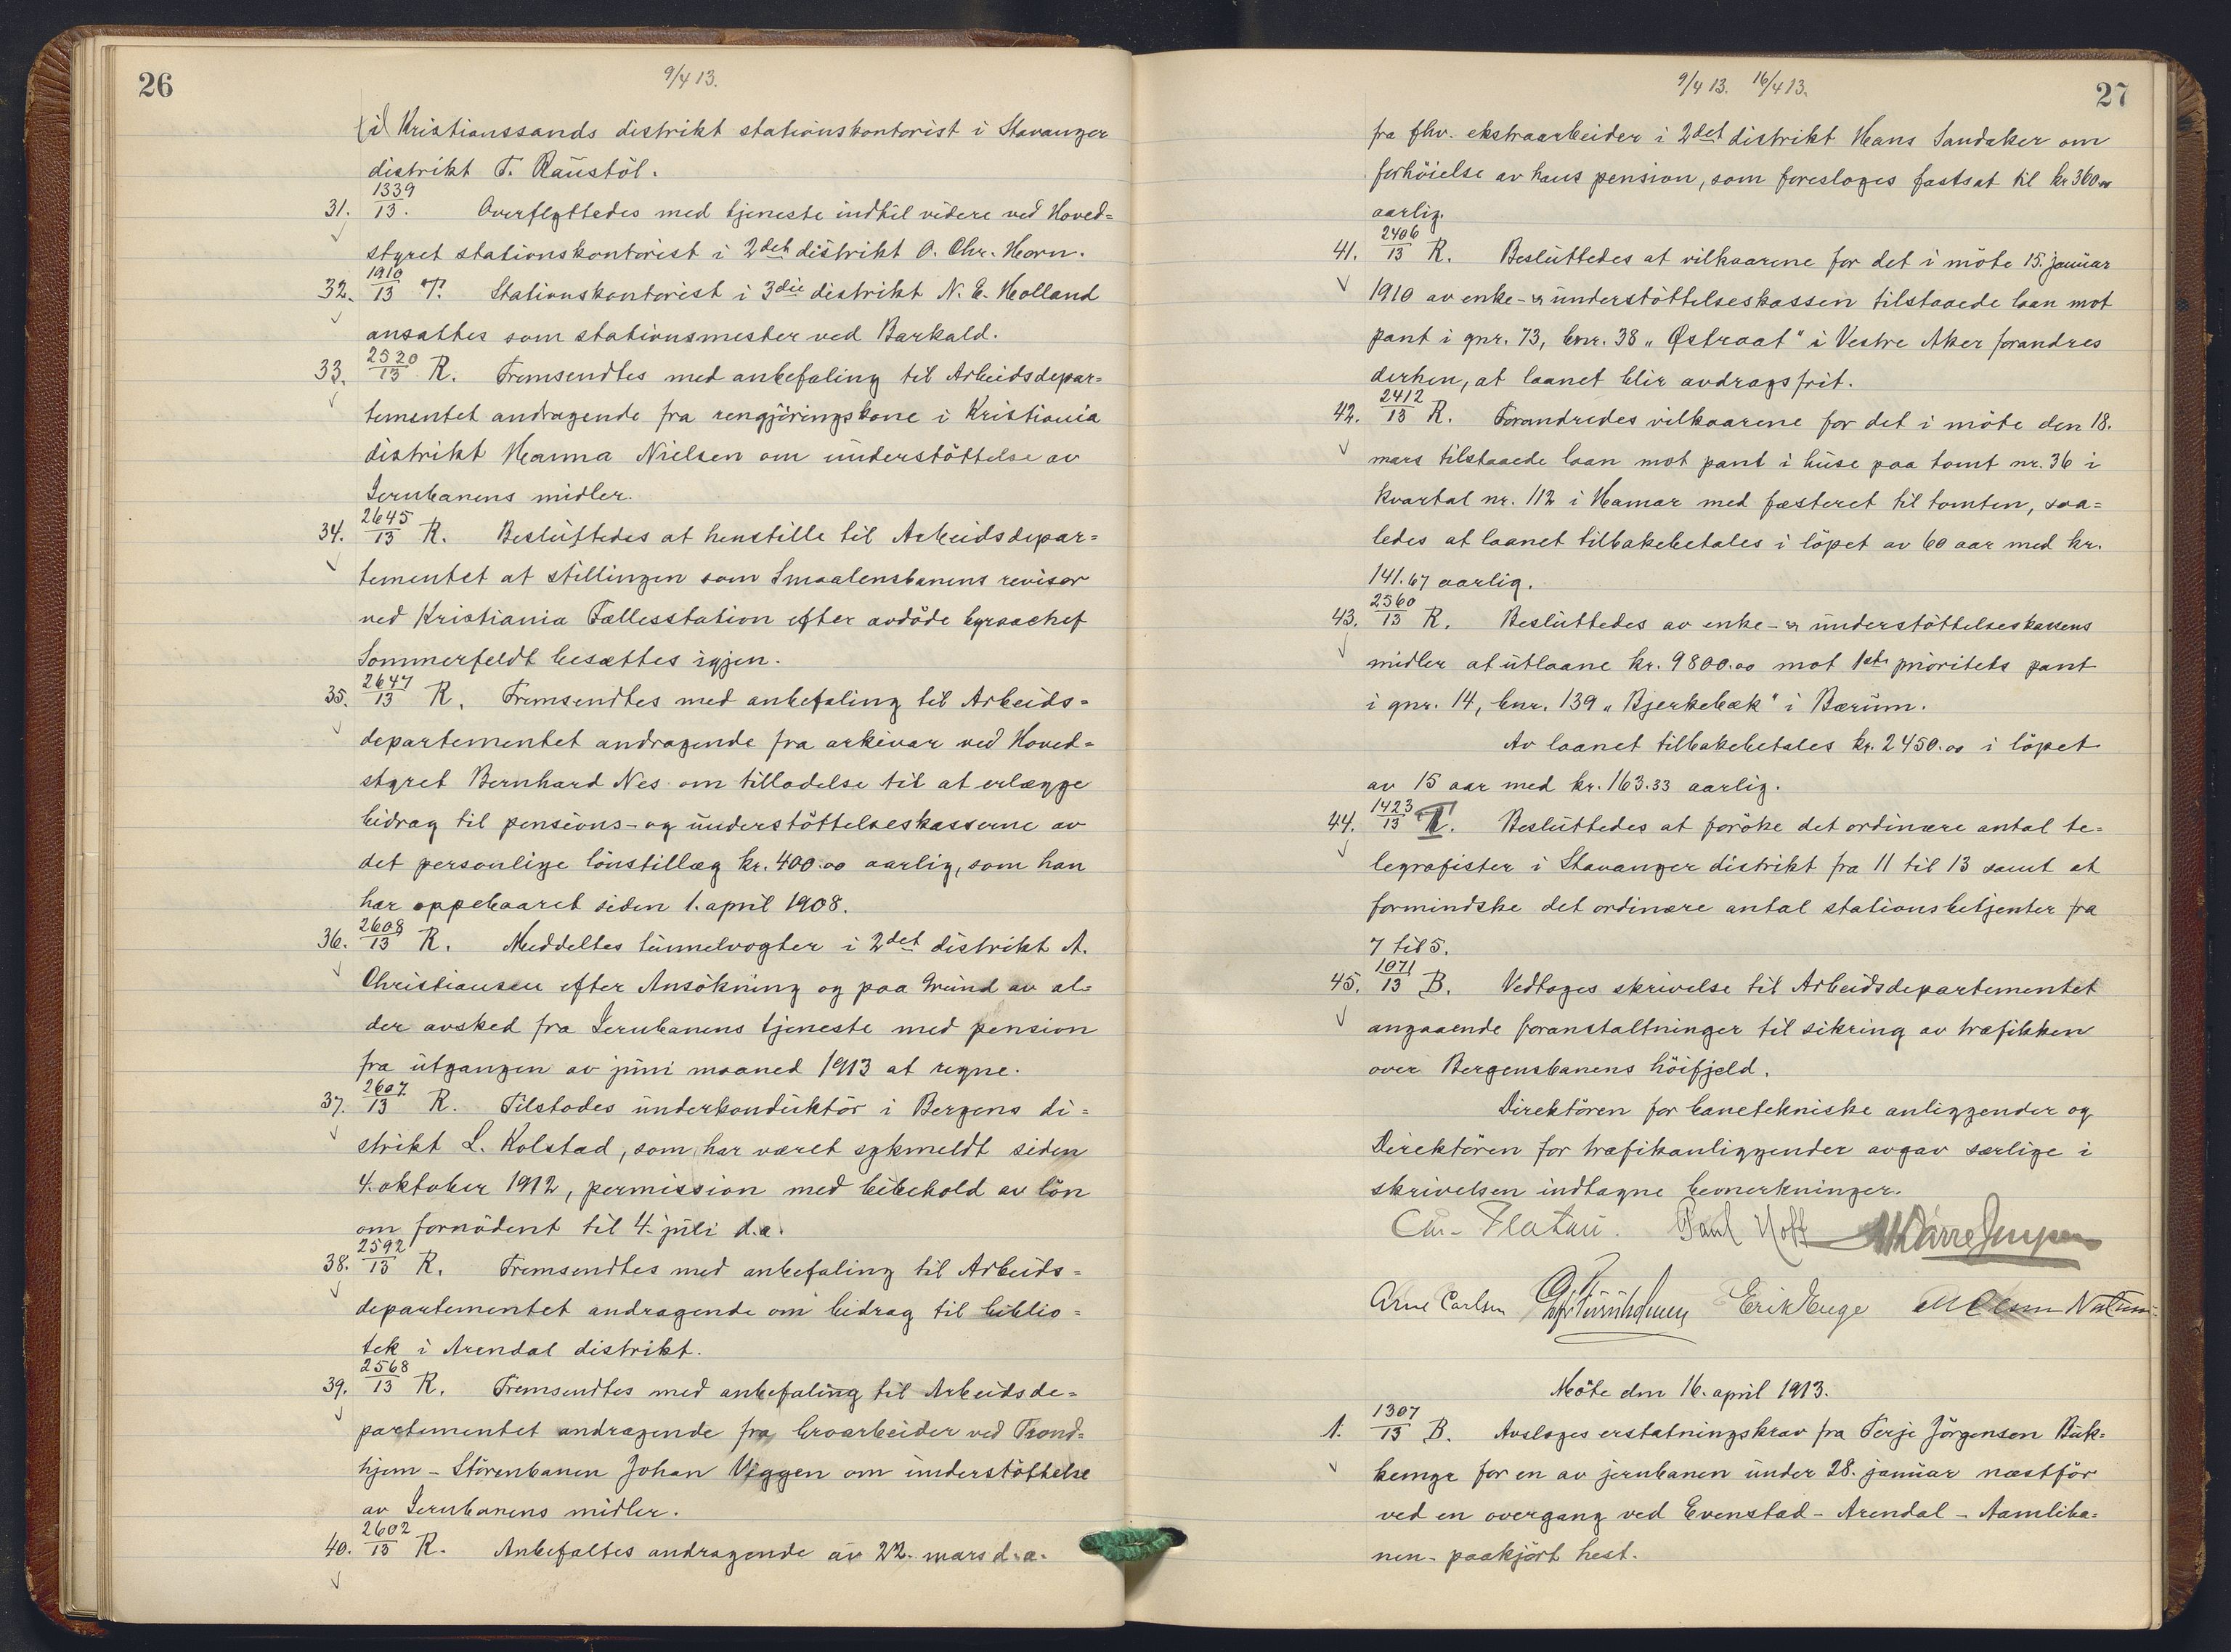 26
9/4 13.
(i) Kristianssands distrikt stationskontorist i Stavanger
distrikt T. Raustöl.
31. 1339/13. Overflyttedes med tjeneste indtil videre ved Hoved=
styret stationskontorist i 2det distrikt O. Chr. Horn.
32. 1910/13 T. Stationskontorist i 3die distrikt N. E. Holland
ansattes som stationsmester ved Barkald.
33. 2520/13 R. Fremsendtes med anbefaling til Arbeidsdepar=
tementet andragende fra rengjöringskone i Kristiania
distrikt Hanna Nielsen om understöttelse av
Jernbanens midler.
34. 2645/13 R. Besluttedes at henstille til Arbeidsdepar=
tementet at stillingen som Smaalensbanens revisor
ved Kristiania Fællesstation efter avdöde byraachef
Sommerfeldt besættes igjen.
35. 2647/13 R. Fremsendtes med anbefaling til Arbeids=
departementet andragende fra arkivar ved Hoved=
styret Bernhard Nes om tilladelse til at erlægge
bidrag til pensions- og understöttelseskasserne av
det personlige lönstillæg kr. 400.00 aarlig, som han
har oppebaaret siden 1. april 1908.
36. 2608/13 R. Meddeltes tunnelvogter i 2det distrikt A.
Christiansen efter Ansökning og paa Grund av al=
der avsked fra Jernbanens tjeneste med pension
fra utgangen av juni maaned 1913 at regne.
37. 2607/13 R. Tilstodes underkonduktör i Bergens di=
strikt L. Kolstad, som har været sykmeldt siden
4. oktober 1912, permission med bibehold av lön
om fornödent til 4. juli d.a.
38. 2592/13 R. Fremsendtes med anbefaling til Arbeids=
departementet andragende om bidrag til biblio=
tek i Arendal distrikt.
39. 2568/13 R. Fremsendtes med anbefaling til Arbeidsde=
partementet andragende fra broarbeider ved Trond=
hjem - Störenbanen Johan Viggen om understöttelse
av Jernbanens midler.
40. 2602/13 R. Anbefaltes andragende av 22. mars d.a.
9/4 13. 16/4 13.
27
fra fhv. ekstraarbeider i 2det distrikt Hans Sandaker om
forhöielse av hans pension, som foresloges fastsat til kr 360.00
aarlig.
41. 2406/13 R. Besluttedes at vilkaarene for det i möte 15. januar
1910 av enke- og understöttelseskassen tilstaaede laan mot
pant i gnr. 73, bnr. 38 „Østraat" i Vestre Aker forandres
derhen, at laanet blir avdragsfrit.
42. 2412/13 R. Forandredes vilkaarene for det i möte den 18.
mars tilstaaede laan mot pant i huse paa tomt nr. 36 i
kvartal nr. 112 i Hamar med fæsteret til tomten, saa=
ledes at laanet tilbakebetales i löpet av 60 aar med kr.
141.67 aarlig.
43. 2560/13 R. Besluttedes av enke- og understöttelseskassens
midler at utlaane kr. 9800.00 mot 1ste prioritets pant
i gnr. 14, bnr. 139 „Bjerkebæk" i Bærum.
Av laanet tilbakebetales kr. 2450.00 i löpet
av 15 aar med kr. 163.33 aarlig.
44. 1423/13 T. Besluttedes at foröke det ordinære antal te=
legrafister i Stavanger distrikt fra 11 til 13 samt at
formindske det ordinære antal stationsbetjenter fra
7 til 5.
45. 1071/13 B. Vedtoges skrivelse til Arbeidsdepartementet
angaaende foranstaltninger til sikring av trafikken
over Bergensbanens höifjeld.
Direktören for banetekniske anliggender og
Direktören for trafikanliggender avgav særlige i
skrivelsen indtagne bemerkninger.
Chr. Platou. Paul Hoff
Arne Carlsen Erik Huge
Möte den 16. april 1913.
1. 1307/13 B. Avsloges erstatningskrav fra Terje Jörgensen Buk=
kemyr for en av jernbanen under 28. januar næstför
ved en overgang ved Evenstad - Arendal - Aamliba=
nen - paakjört hest.